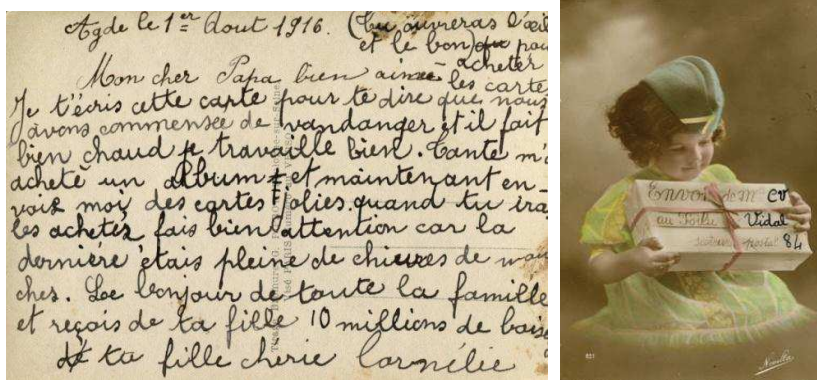 Agde le 1er Aout 1916. (tu ouvreras l'œil
et le bon) pour
acheter
les carte
Mon cher Papa bien aimée
Je t'écris cette carte pour te dire que nous
avons commensée de vandanger et il fait
bien chaud je travaille bien. Tante m'a
acheté un Album et maintenant en-
vois moi des cartes Jolies. quand tu iras
les achetés fais bien attention car la
dernière étais pleine de chiures de mou
ches. Le bonjour de toute la famille
et reçois de ta fille 10 millions de baise
ta fille cherie Cornélie
Envoi de M CV
au Poilu Vidal
secteur postal 84
221